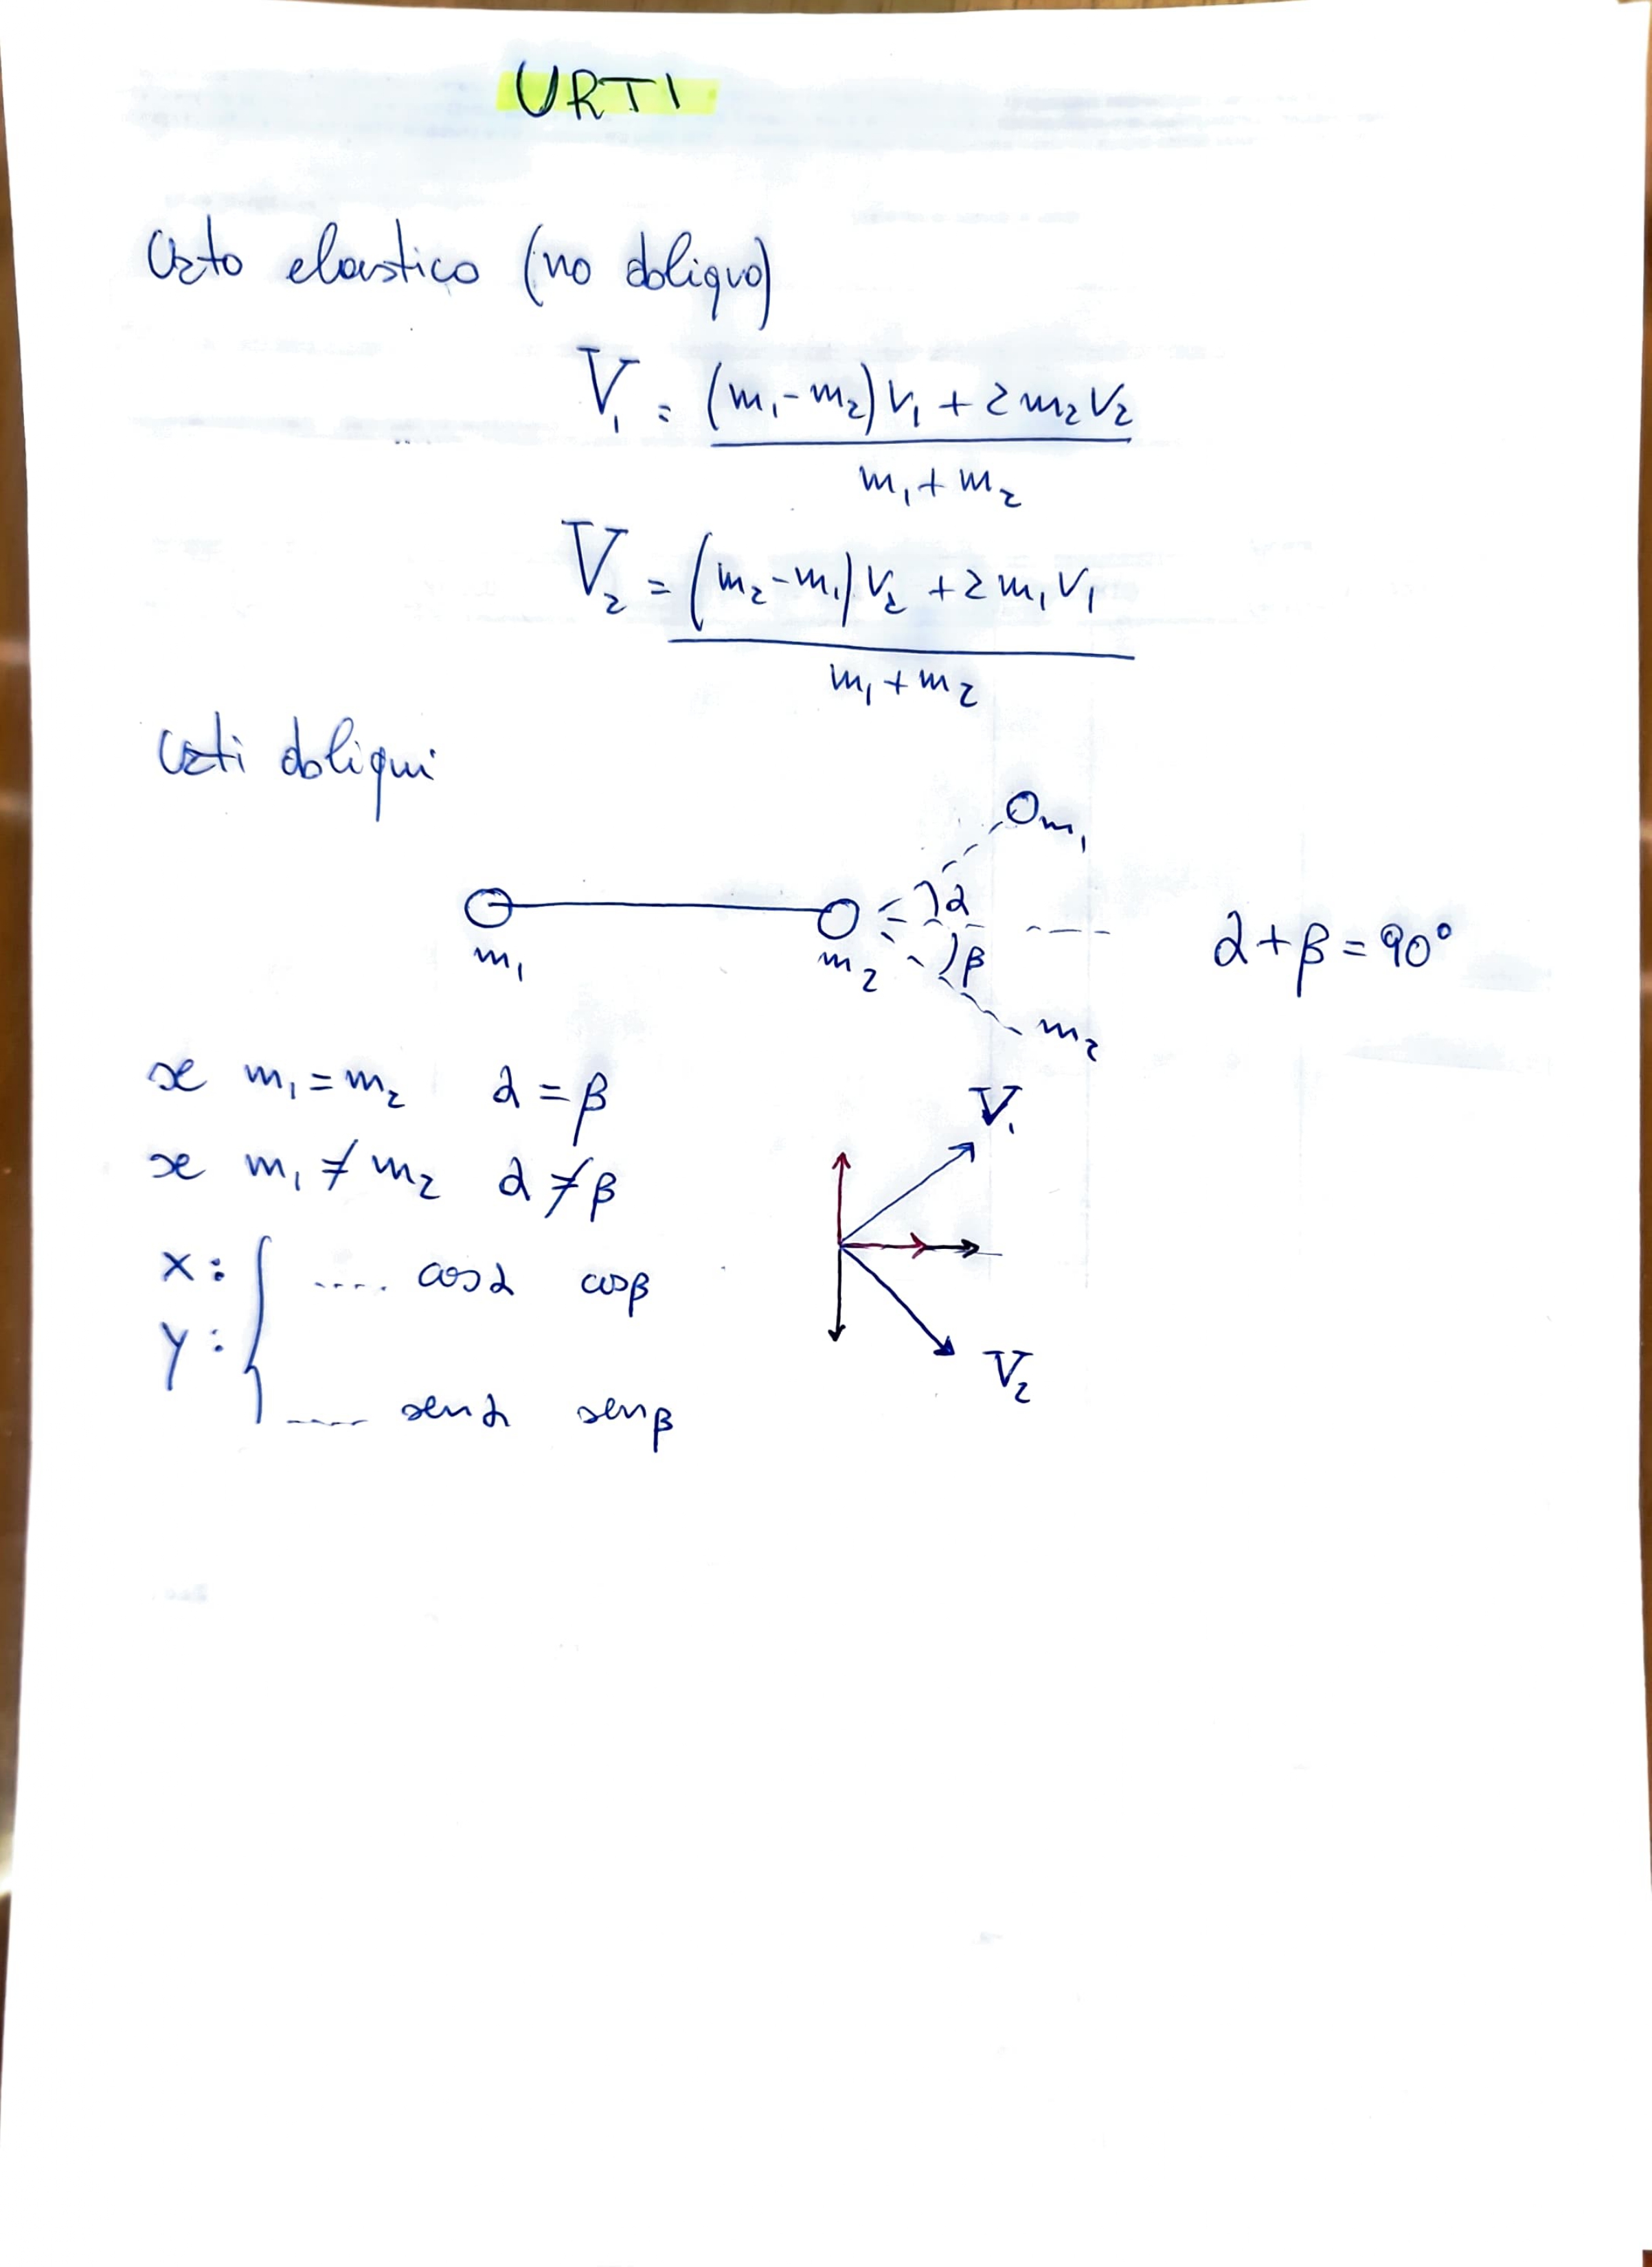 URTI
Urto elastico (no obliquo)
V₁ = (m₁-m₂)v₁ + 2m₂v₂
m₁+m₂
V₂ = (m₂-m₁)v₂ + 2m₁v₁
m₁+m₂
Urti obliqui
m₁
α
m₁ m₂ β α+β=90°
m₂
se m₁=m₂ α=β
V₁
se m₁≠m₂ α≠β
x: .... cosα cosβ
y:
V₂
.... senα senβ